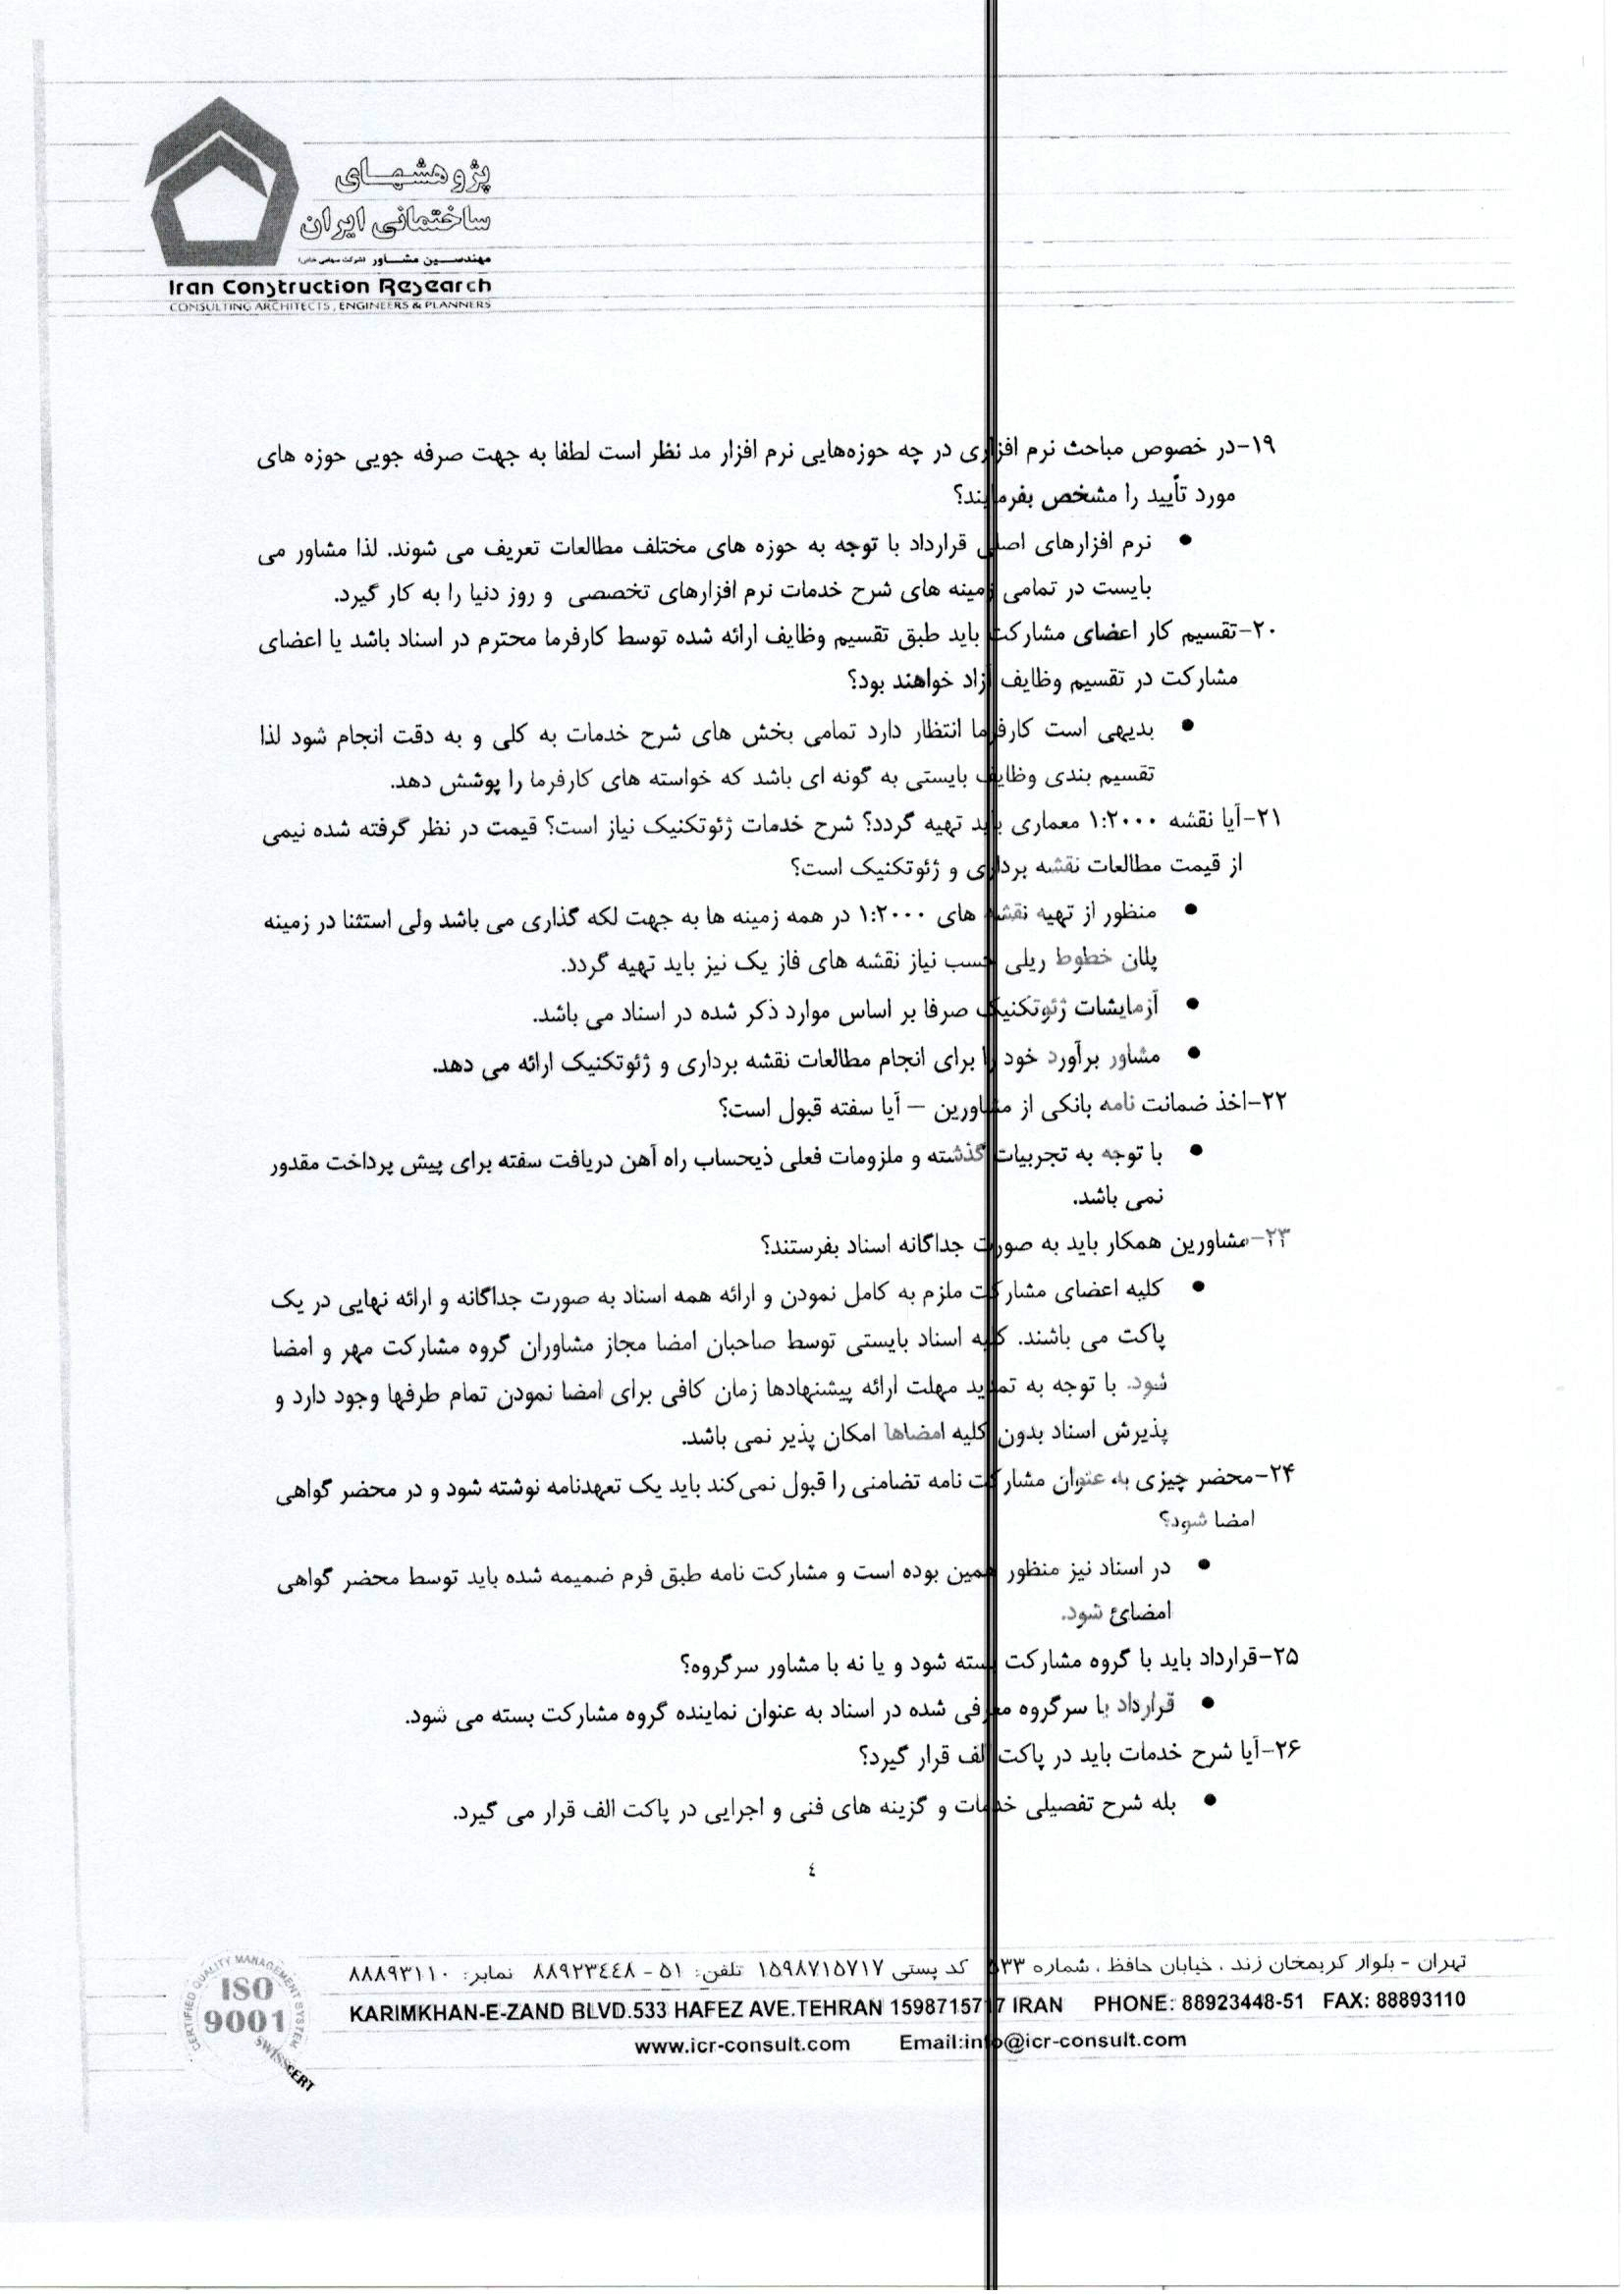 پژوهشهای
ساختمانی ایران
مهندسین مشاور (شرکت سهامی خاص)
Iran Construction Research
CONSULTING ARCHITECTS, ENGINEERS & PLANNERS
۱۹-در خصوص مباحث نرم افزاری در چه حوزه‌هایی نرم افزار مد نظر است لطفا به جهت صرفه جویی حوزه های
مورد تأیید را مشخص بفرمایند؟
• نرم افزارهای اصلی قرارداد با توجه به حوزه های مختلف مطالعات تعریف می شوند. لذا مشاور می
بایست در تمامی زمینه های شرح خدمات نرم افزارهای تخصصی و روز دنیا را به کار گیرد.
۲۰-تقسیم کار اعضای مشارکت باید طبق تقسیم وظایف ارائه شده توسط کارفرما محترم در اسناد باشد یا اعضای
مشارکت در تقسیم وظایف آزاد خواهند بود؟
• بدیهی است کارفرما انتظار دارد تمامی بخش های شرح خدمات به کلی و به دقت انجام شود لذا
تقسیم بندی وظایف بایستی به گونه ای باشد که خواسته های کارفرما را پوشش دهد.
۲۱-آیا نقشه ۱:۲۰۰۰ معماری باید تهیه گردد؟ شرح خدمات ژئوتکنیک نیاز است؟ قیمت در نظر گرفته شده نیمی
از قیمت مطالعات نقشه برداری و ژئوتکنیک است؟
• منظور از تهیه نقشه های ۱:۲۰۰۰ در همه زمینه ها به جهت لکه گذاری می باشد ولی استثنا در زمینه
پلان خطوط ریلی حسب نیاز نقشه های فاز یک نیز باید تهیه گردد.
• آزمایشات ژئوتکنیک صرفا بر اساس موارد ذکر شده در اسناد می باشد.
• مشاور برآورد خود را برای انجام مطالعات نقشه برداری و ژئوتکنیک ارائه می دهد.
۲۲-اخذ ضمانت نامه بانکی از مشاورین – آیا سفته قبول است؟
• با توجه به تجربیات گذشته و ملزومات فعلی ذیحساب راه آهن دریافت سفته برای پیش پرداخت مقدور
نمی باشد.
۲۳-مشاورین همکار باید به صورت جداگانه اسناد بفرستند؟
• کلیه اعضای مشارکت ملزم به کامل نمودن و ارائه همه اسناد به صورت جداگانه و ارائه نهایی در یک
پاکت می باشند. کلیه اسناد بایستی توسط صاحبان امضا مجاز مشاوران گروه مشارکت مهر و امضا
شود. با توجه به تمدید مهلت ارائه پیشنهادها زمان کافی برای امضا نمودن تمام طرفها وجود دارد و
پذیرش اسناد بدون کلیه امضاها امکان پذیر نمی باشد.
۲۴-محضر چیزی به عنوان مشارکت نامه تضامنی را قبول نمی‌کند باید یک تعهدنامه نوشته شود و در محضر گواهی
امضا شود؟
• در اسناد نیز منظور همین بوده است و مشارکت نامه طبق فرم ضمیمه شده باید توسط محضر گواهی
امضائ شود.
۲۵-قرارداد باید با گروه مشارکت بسته شود و یا نه با مشاور سرگروه؟
• قرارداد با سرگروه معرفی شده در اسناد به عنوان نماینده گروه مشارکت بسته می شود.
۲۶-آیا شرح خدمات باید در پاکت الف قرار گیرد؟
• بله شرح تفصیلی خدمات و گزینه های فنی و اجرایی در پاکت الف قرار می گیرد.
٤
تهران - بلوار کریمخان زند ، خیابان حافظ ، شماره ۵۳۳ کد پستی ۱۵۹۸۷۱۵۷۱۷ تلفن: ۵۱ - ۸۸۹۲۳٤٤۸ نمابر: ۸۸۸۹۳۱۱۰
KARIMKHAN-E-ZAND BLVD.533 HAFEZ AVE.TEHRAN 1598715717 IRAN PHONE: 88923448-51 FAX: 88893110
www.icr-consult.com Email:info@icr-consult.com
CERTIFIED QUALITY MANAGEMENT SYSTEM
ISO
9001
SWISSCERT